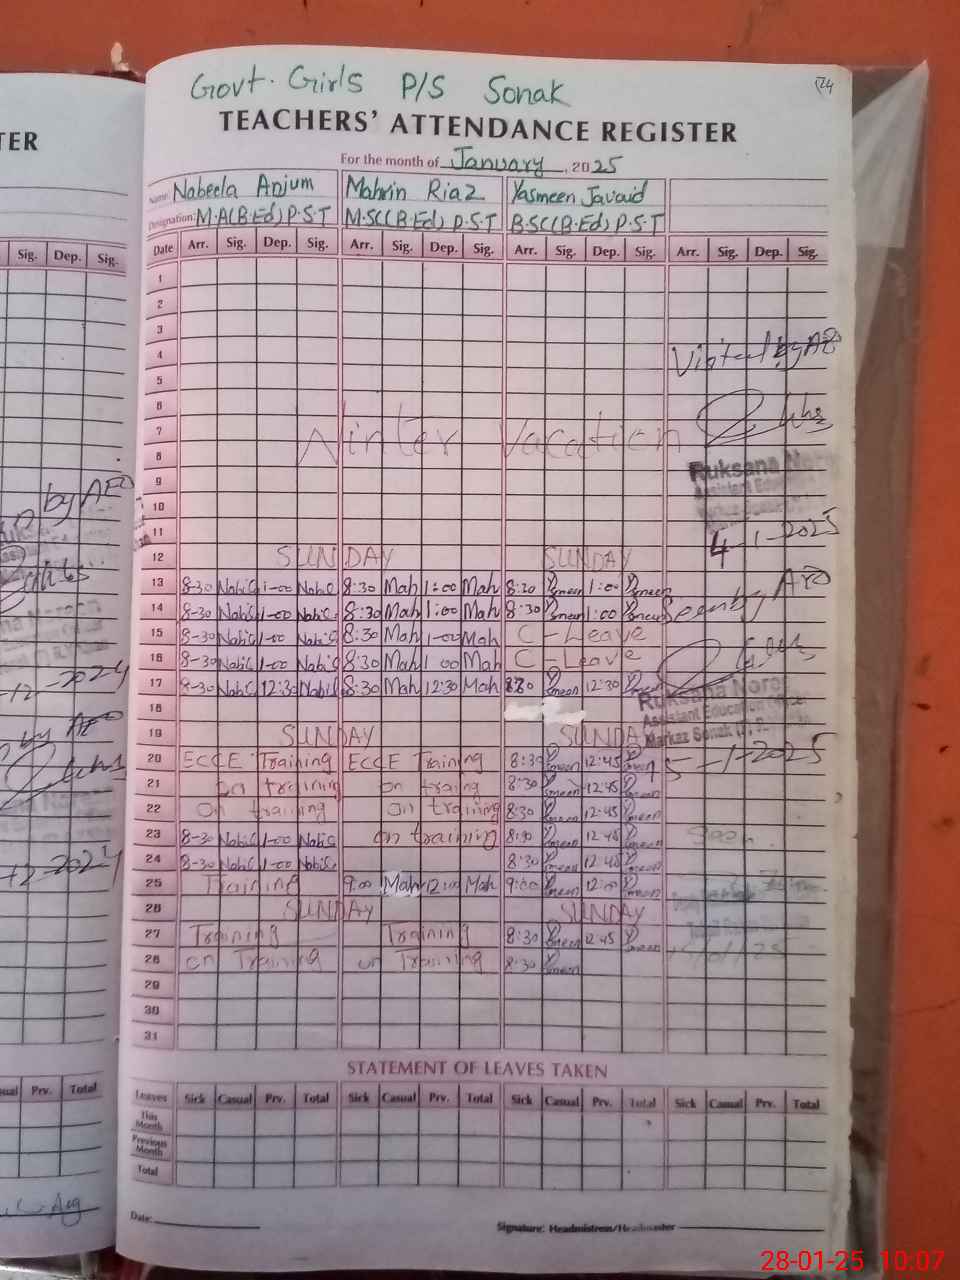 Govt. Girls P/S Sonak
24
TEACHERS' ATTENDANCE REGISTER
For the month of January, 2025
Name: Nabeela Anjum Mahrin Riaz Yasmeen Javaid
Designation: M.A(B.Ed) P.S.T M.SC(B.Ed) P.S.T B.SC(B.Ed) P.S.T
Date Arr. Sig. Dep. Sig. Arr. Sig. Dep. Sig. Arr. Sig. Dep. Sig. Arr. Sig. Dep. Sig.
1
2
3
4 Visited by AEO
5
6
7 Winter Vacation
8
9 Ruksana Noreen
10 Assistant Education
11 4-1-2025
12 SUNDAY SUNDAY
13 8-30 Nabi 1-00 Nabi 8:30 Mah 1:00 Mah 8:30 Ysmeen 1:00 Ysmeen
14 8-30 Nabi 1-00 Nabi 8:30 Mah 1:00 Mah 8:30 Ysmeen 1:00 Ysmeen Seen by AEO
15 8-30 Nabi 1-00 Nabi 8:30 Mah 1-00 Mah C-Leave
16 8-30 Nabi 1-00 Nabi 8:30 Mah 1 00 Mah C-Leave
17 8-30 Nabi 12:30 Nabi 8:30 Mah 12:30 Mah 8:30 Ysmeen 12:30 Ysmeen Ruksana Noreen
18 Assistant Education Officer
19 SUNDAY SUNDAY Markaz Sonak
20 ECCE Training ECCE Training 8:30 Ysmeen 12:45 Ysmeen 15-1-2025
21 on training on traing 8:30 Ysmeen 12:45 Ysmeen
22 on training on training 8:30 Ysmeen 12:45 Ysmeen
23 8-30 Nabi 1-00 Nabi on training 8:30 Ysmeen 12:45 Ysmeen Seen
24 8-30 Nabi 1-00 Nabi 8:30 Ysmeen 12:45 Ysmeen
25 Training 9:00 Mah 12:00 Mah 9:00 Ysmeen 12:00 Ysmeen
26 SUNDAY SUNDAY
27 Training Training 8:30 Ysmeen 12:45 Ysmeen
28 on Training on Training 8:30 Ysmeen
29
30
31
STATEMENT OF LEAVES TAKEN
Leaves Sick Casual Prv. Total Sick Casual Prv. Total Sick Casual Prv. Total Sick Casual Prv. Total
This Month
Previous Month
Total
Date:
Signature: Headmistress/Headmaster
TER
Sig. Dep. Sig.
by AEO
Prv. Total
28-01-25 10:07